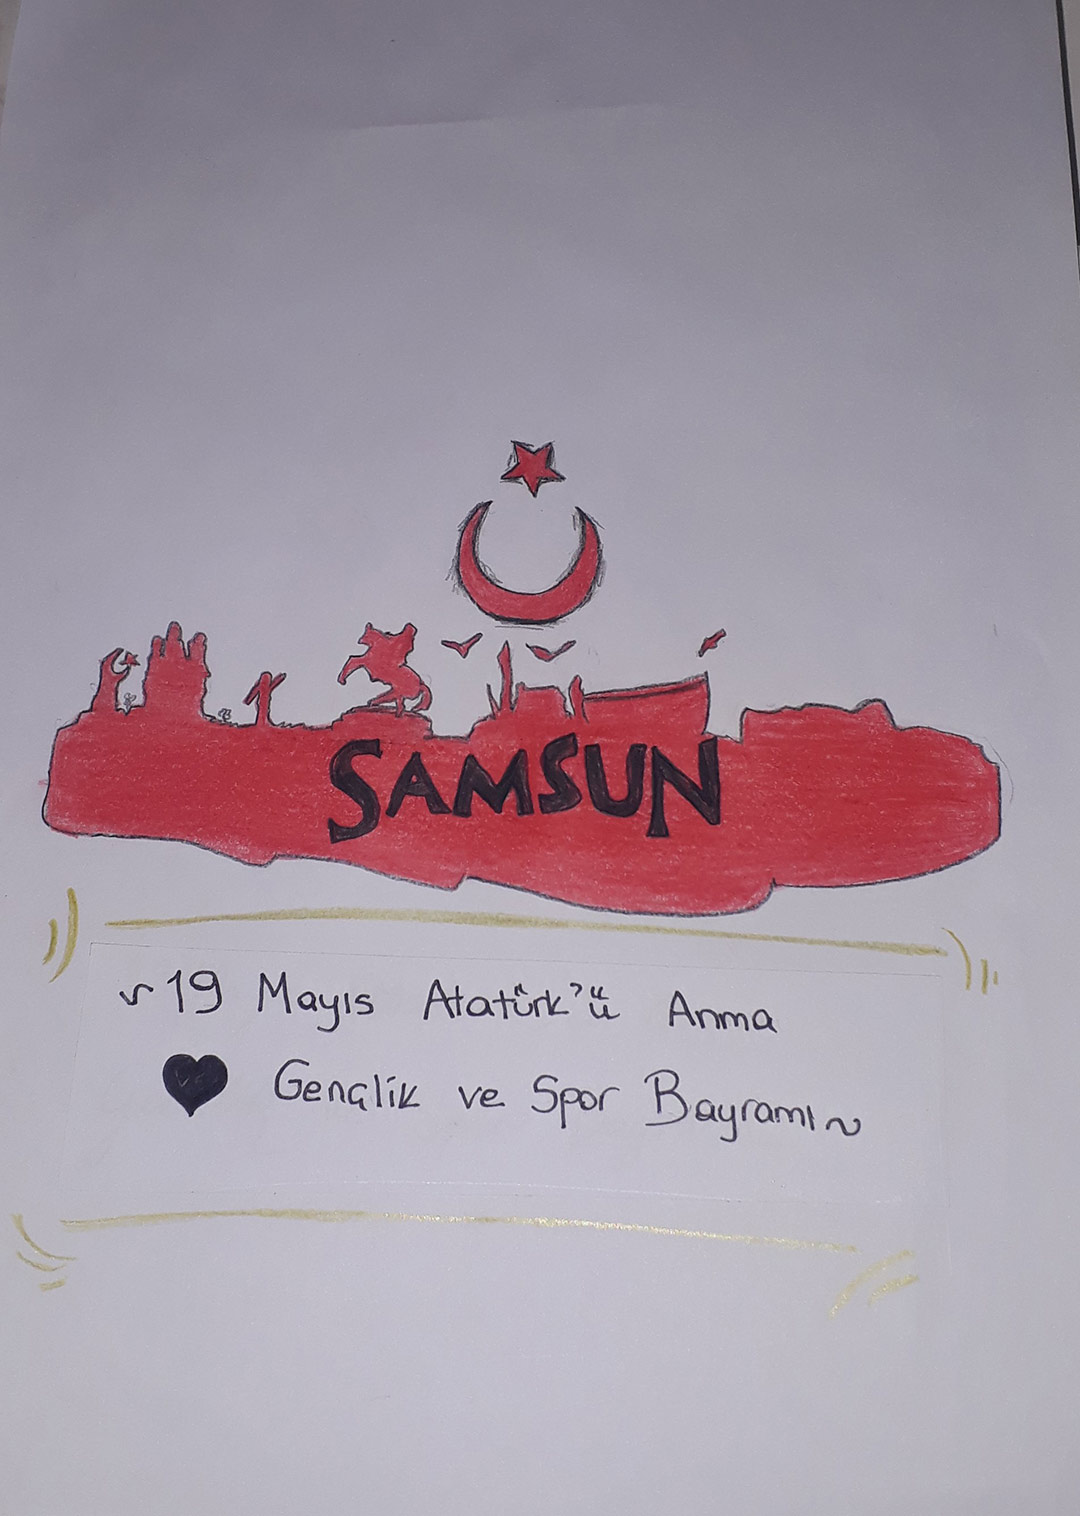 SAMSUN
~19 Mayıs Atatürk'ü Anma
Gençlik ve Spor Bayramı~